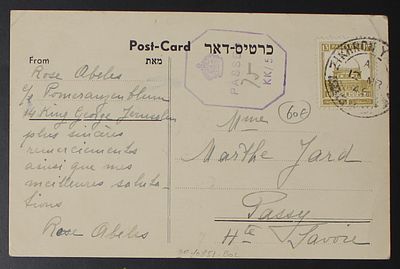 Post-Card כרטיס-דאר
From מאת
Rose Abeles
c/o Pomeranzenblum
14 King George Jerusalem
plus sincères
remerciements
ainsi que mes
meilleures saluta-
tions
Rose Abeles
PASSED
KK/5
ZIKHRON Y
60F
Mme
Marthe Jard
Passy
Hte Savoie